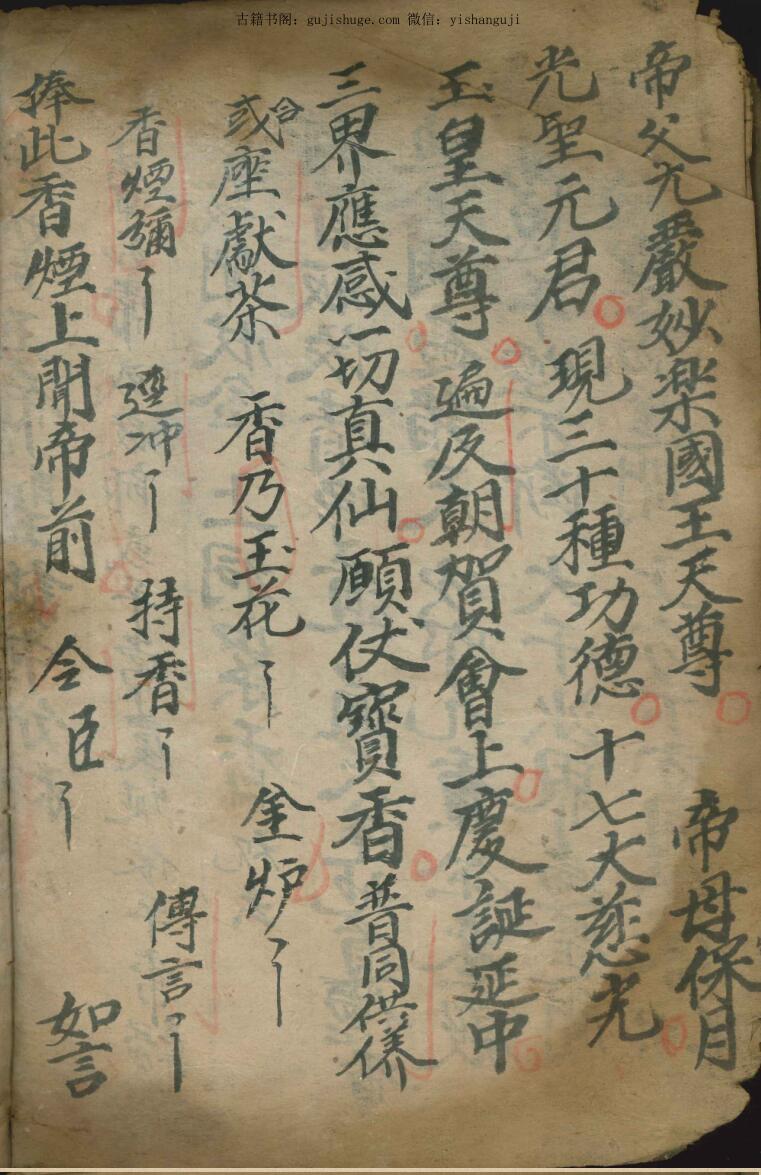 古籍书阁：gujishuge.com 微信：yishanguji
帝父光嚴妙楽國王天尊 帝母保月
光聖元君 現三十種功德 十七大慈光
玉皇天尊 遍及朝賀會上慶誕延中
三界應感一切真仙 願仗寶香普同供養
或合座獻茶 香乃玉花 金炉
香煙彌 遶冲 持香 傳言
捧此香煙上聞帝前 令臣 如言